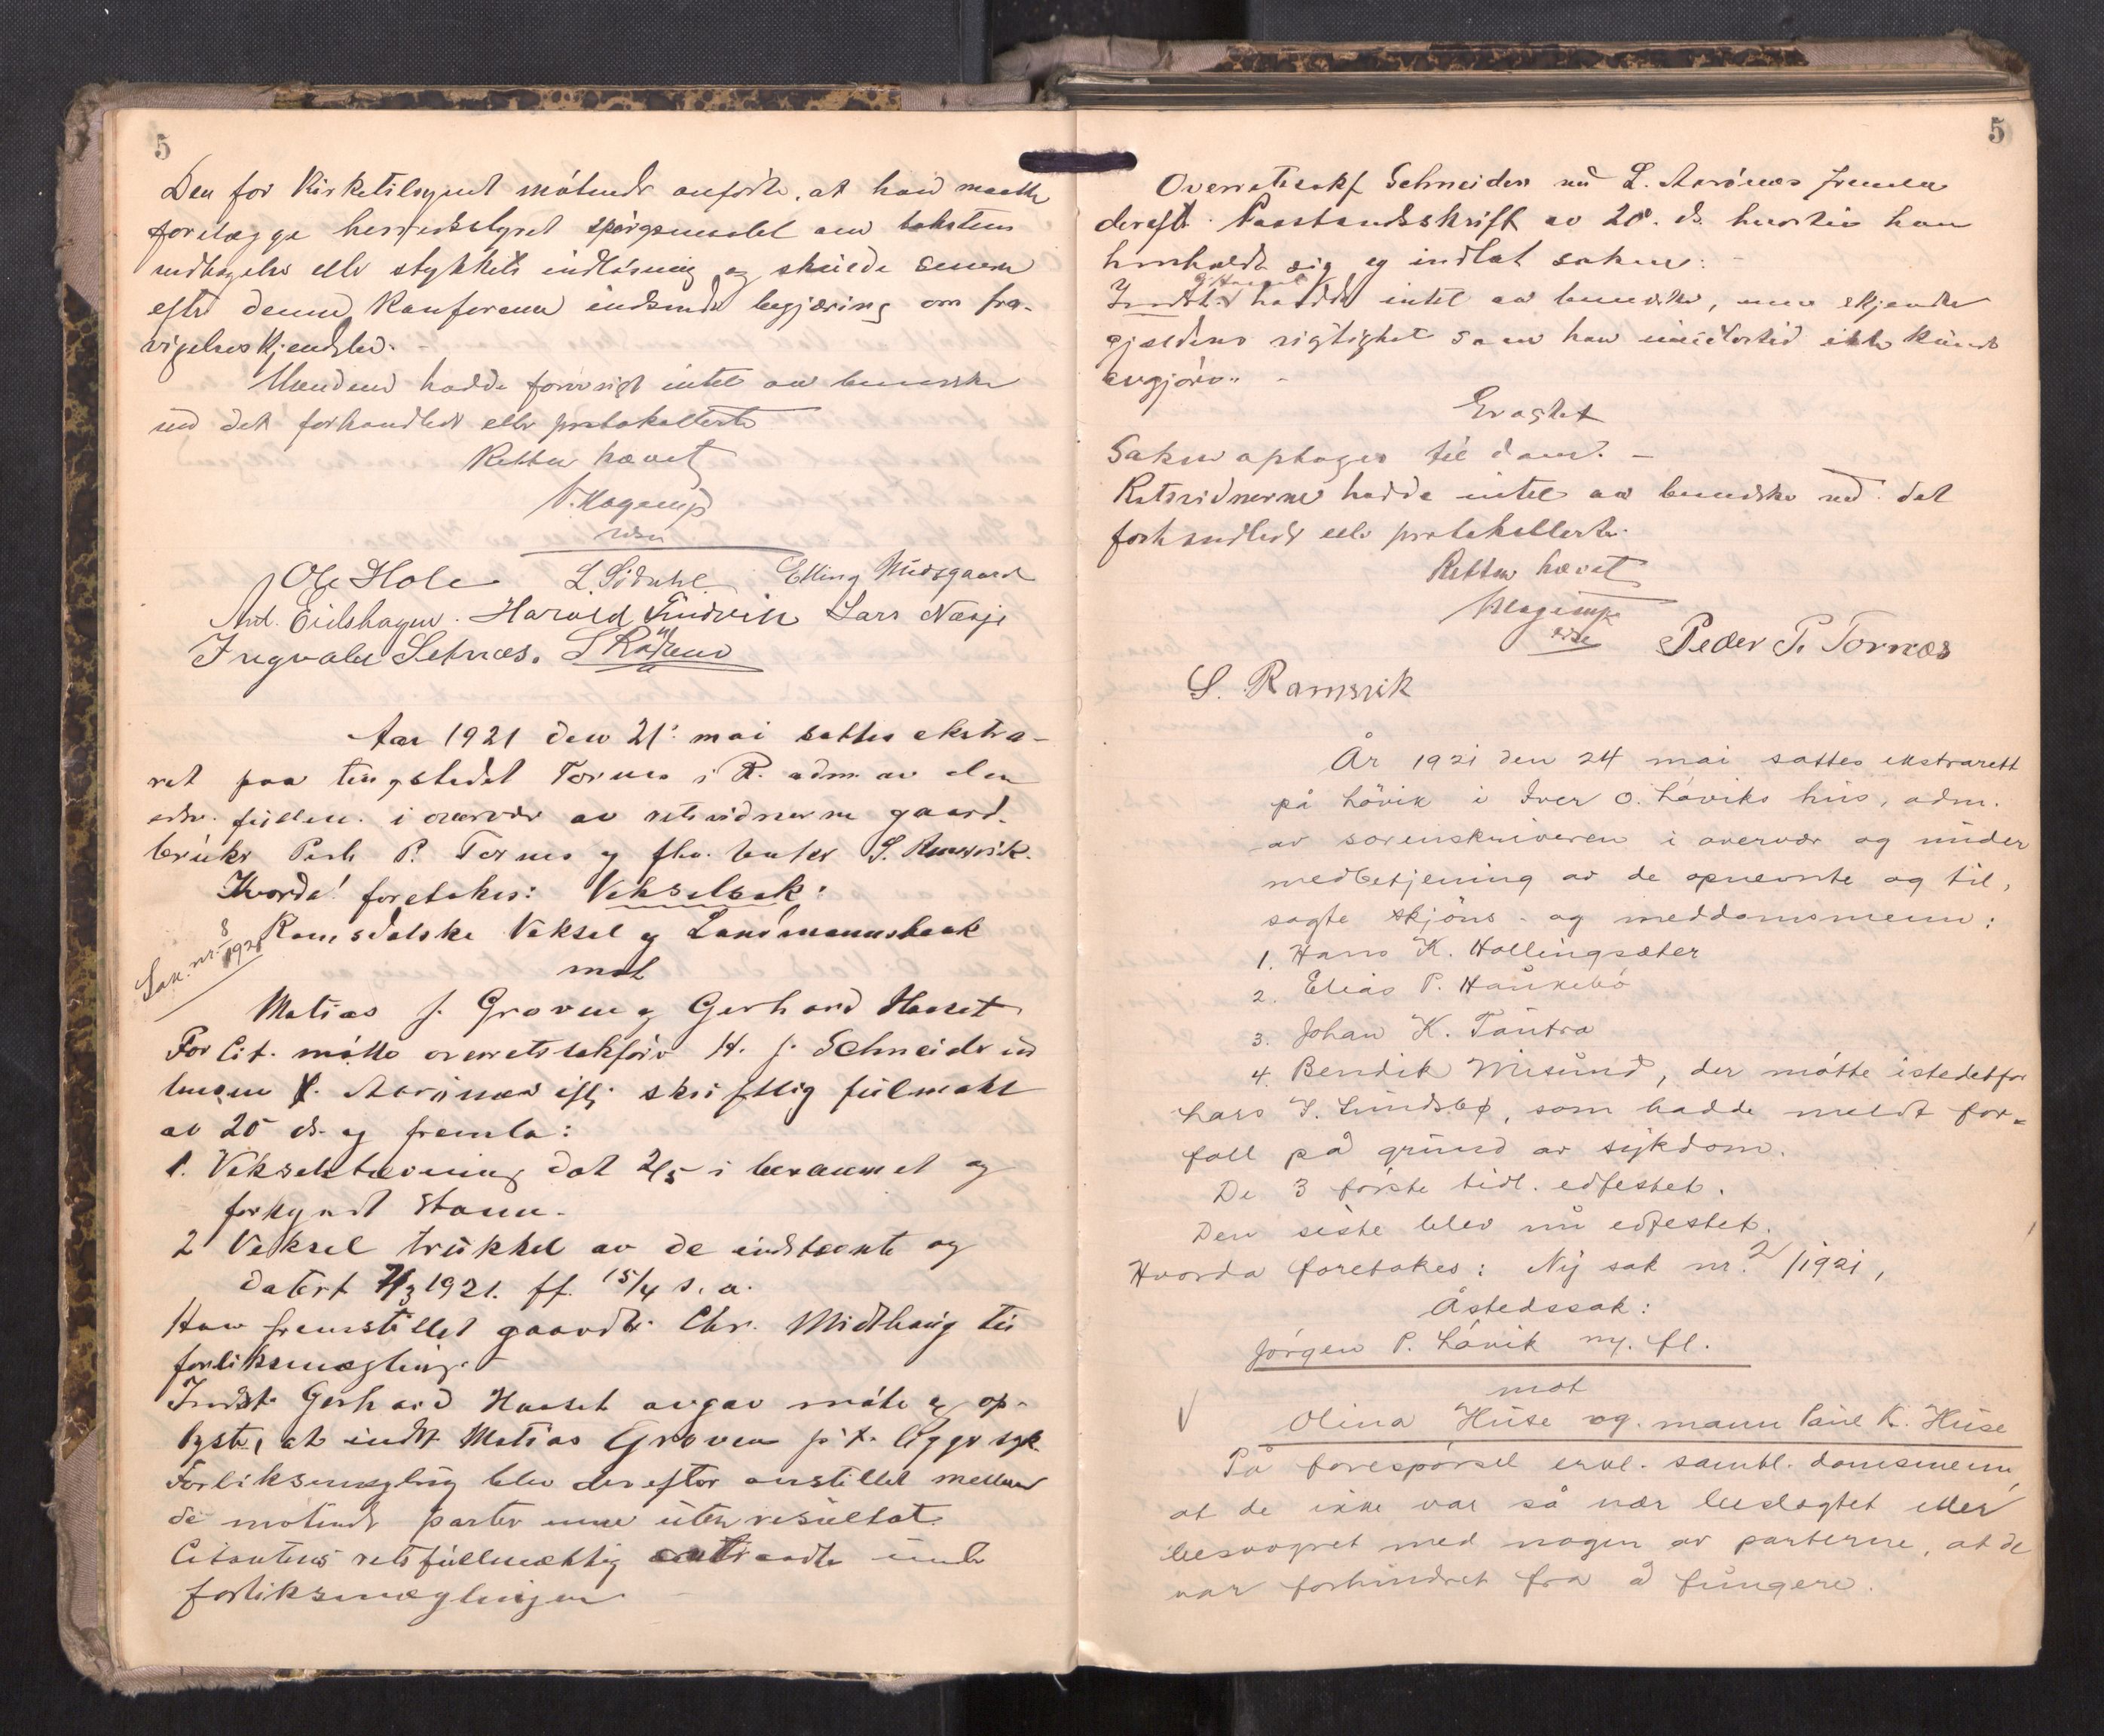 5
Den for Kirketilsynet møtende anførte, at han maatte
forelægge herredsstyret spørgsmaalet om takstens
vedtagelse eller stykkets indløsning og skulde senere
efter denne Konferanse indsende begjæring om fra-
vigelseskjendelse. -
Mændene hadde forøvrigt intet at bemerke
ved det forhandlede eller protokollerte
Retten hævet
Ole Hole L. Sidahl Elling Midsgaard
And. Eidshagen. Harald Lars Næsje
Ingvald Setnæs.
Aar 1921 den 21. mai sattes ekstra-
ret paa tingstedet Tornes i R. adm. av den
edsv. fuldm. i overvær av retsvidnerne gaard-
bruker Peder P. Tornes og fhv. S. Ramsvik.
Hvorda! foretokes: Vekselsak:
Sak. nr. 8/1921
Romsdalske Veksel og Landmannsbank
mot
Matias J. Groven og Gerhard Haaset
For Cit. møtte overretssakfører H. J. Schneider ved
L. Aarønæs ifl. skriftlig fulmakt
av 20 ds. og fremla:
1. Vekselstevning dat 2/5 i berammet og
forkyndt stand.
2 Veksel trukket av de indstevnte og
datert 7/3 1921. ff. 15/4 s. a.
Han fremstillet gaardbr. Chr. Midthaug til
forliksmægling.
Indst. Gerhard Haaset avgav møte og op-
lyste, at indst. Matias Groven p. t. ligger syk.
Forliksmægling blev derefter anstillet mellem
de møtende parter men uten resultat.
Citantens retsfuldmægtig under
forliksmæglingen -
5
Overretssakf Schneider ved L. Aarønæs fremla
dereft. Paastandsskrift av 20. ds. hvortil han
henholdt sig og indlot saken: -
Indst. G. Haaset hadde intet at bemerke, men erkjendte
gjældens rigtighet som han imidlertid ikke kunde
avgjøre. -
Eragtet
Saken optages til dom. -
Retsvidnerne hadde intet at bemerke ved det
forhandlede eller protokollerte.
Retten hævet
Peder P. Tornæs
S. Ramsvik
År 1921 den 24 mai sattes ekstrarett
på Løvik i Iver O. Løviks hus, adm.
av sorenskriveren i overvær og under
medbetjening av de opnevnte og til,
sagte skjøns- og meddomsmenn:
1. Hans K. Hollingsæter
2. Elias P. Haukebø
3. Johan K. Tautra
4. Bendik Misund, der møtte istedetfor
Lars I. Lundsbø, som hadde meldt for-
fall på grund av sykdom.
De 3 første tidl. edfestet.
Den siste blev nu edfestet.
Hvorda foretokes: Ny sak nr. 2/1921,
Åstedssak:
Jørgen P. Løvik m. fl.
mot
√ Olina Huse og mann Paul K. Huse
På forespørsel erkl. samtl. domsmenn,
at de ikke var så nær beslægtet eller
besvogret med nogen av parterne, at de
var forhindret fra å fungere.